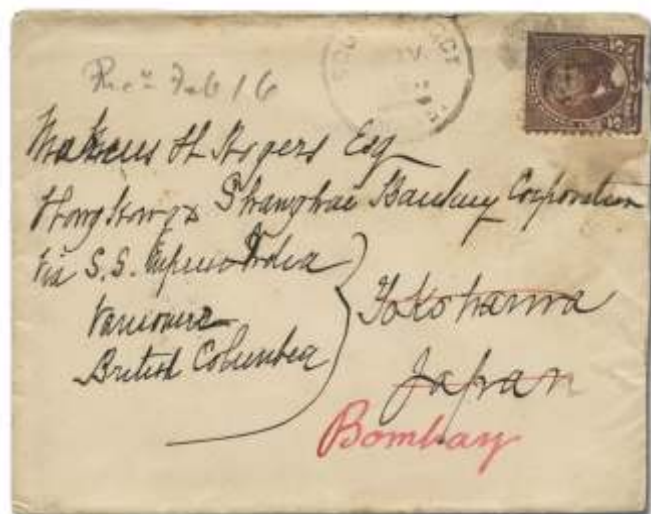 Rec'd Feb 16
Marcus H Rogers Esq
Hong Kong & Shanghai Banking Corporation
Via S.S. Empress India
Vancouver
British Columbia
Yokohama
Japan
Bombay